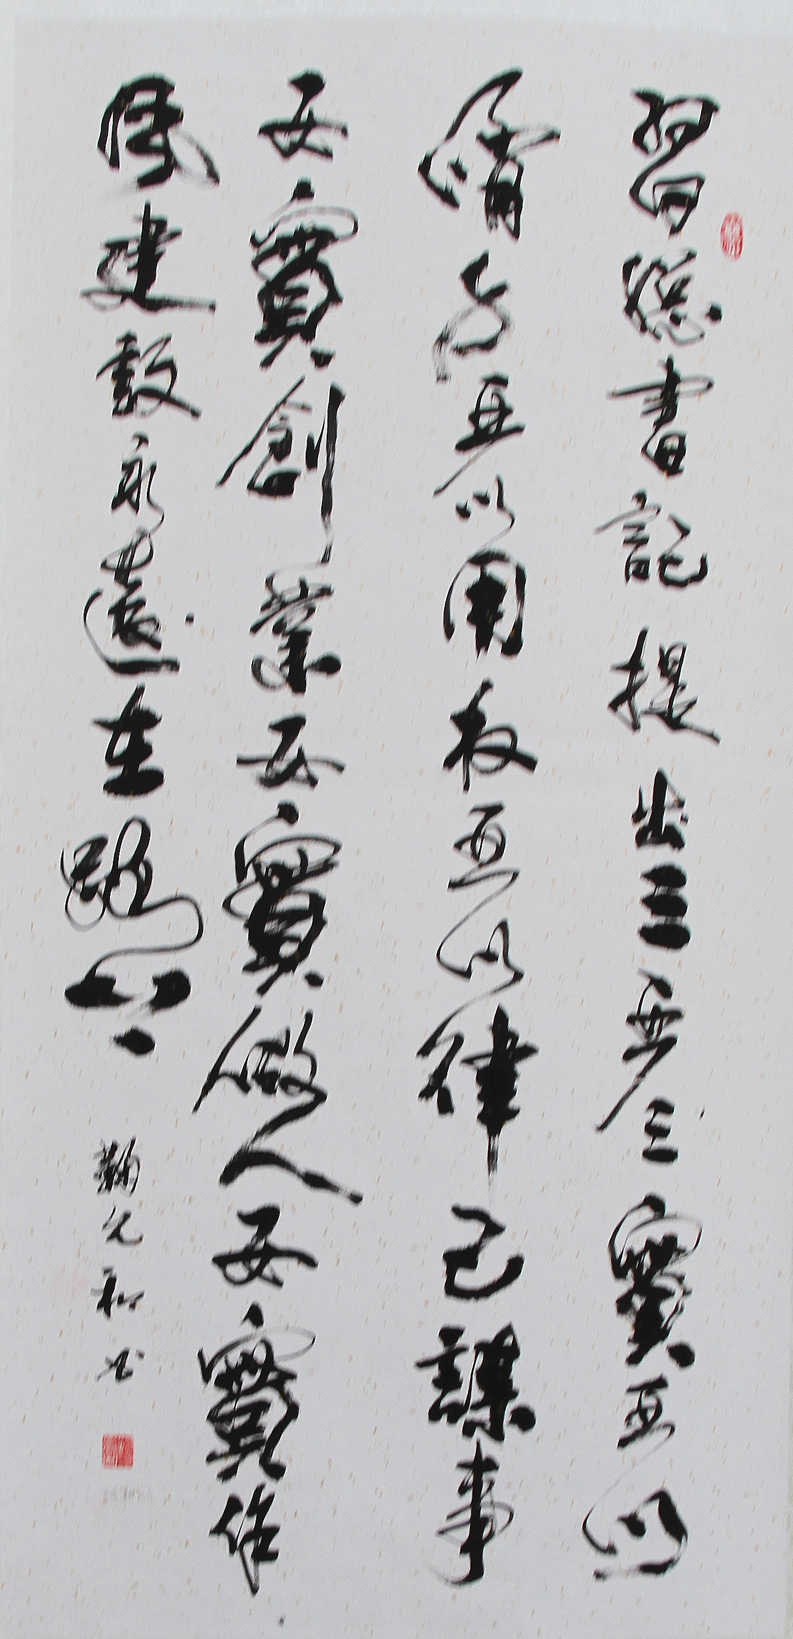 習總書記提出三严三實严以
脩身严以用权严以律己謀事
要實創業要實做人要實作
風建設永遠在路上
鞠允和书